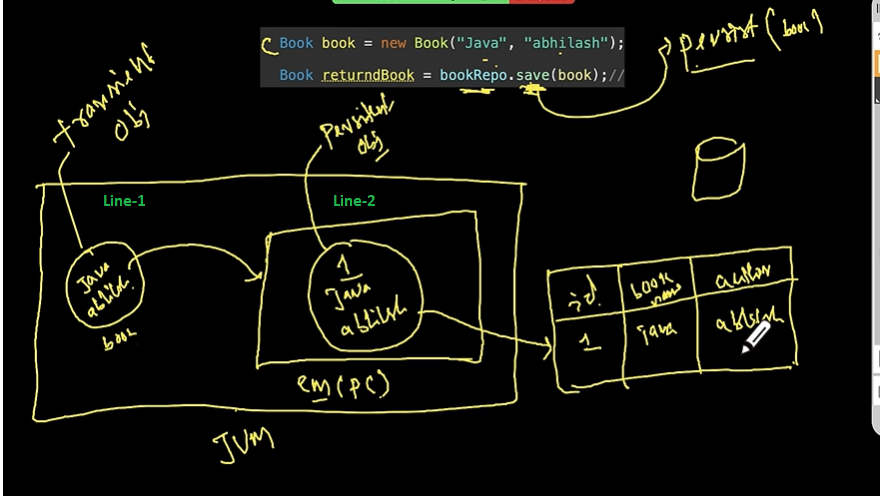 Book book = new Book("Java", "abhilash");
Book returndBook = bookRepo.save(book);//
persist(book)
transient
obj
persistent
obj
Line-1
Line-2
Java
abhilash
book
1
Java
abhilash
em(PC)
JVM
id book name author
1 java abhilash